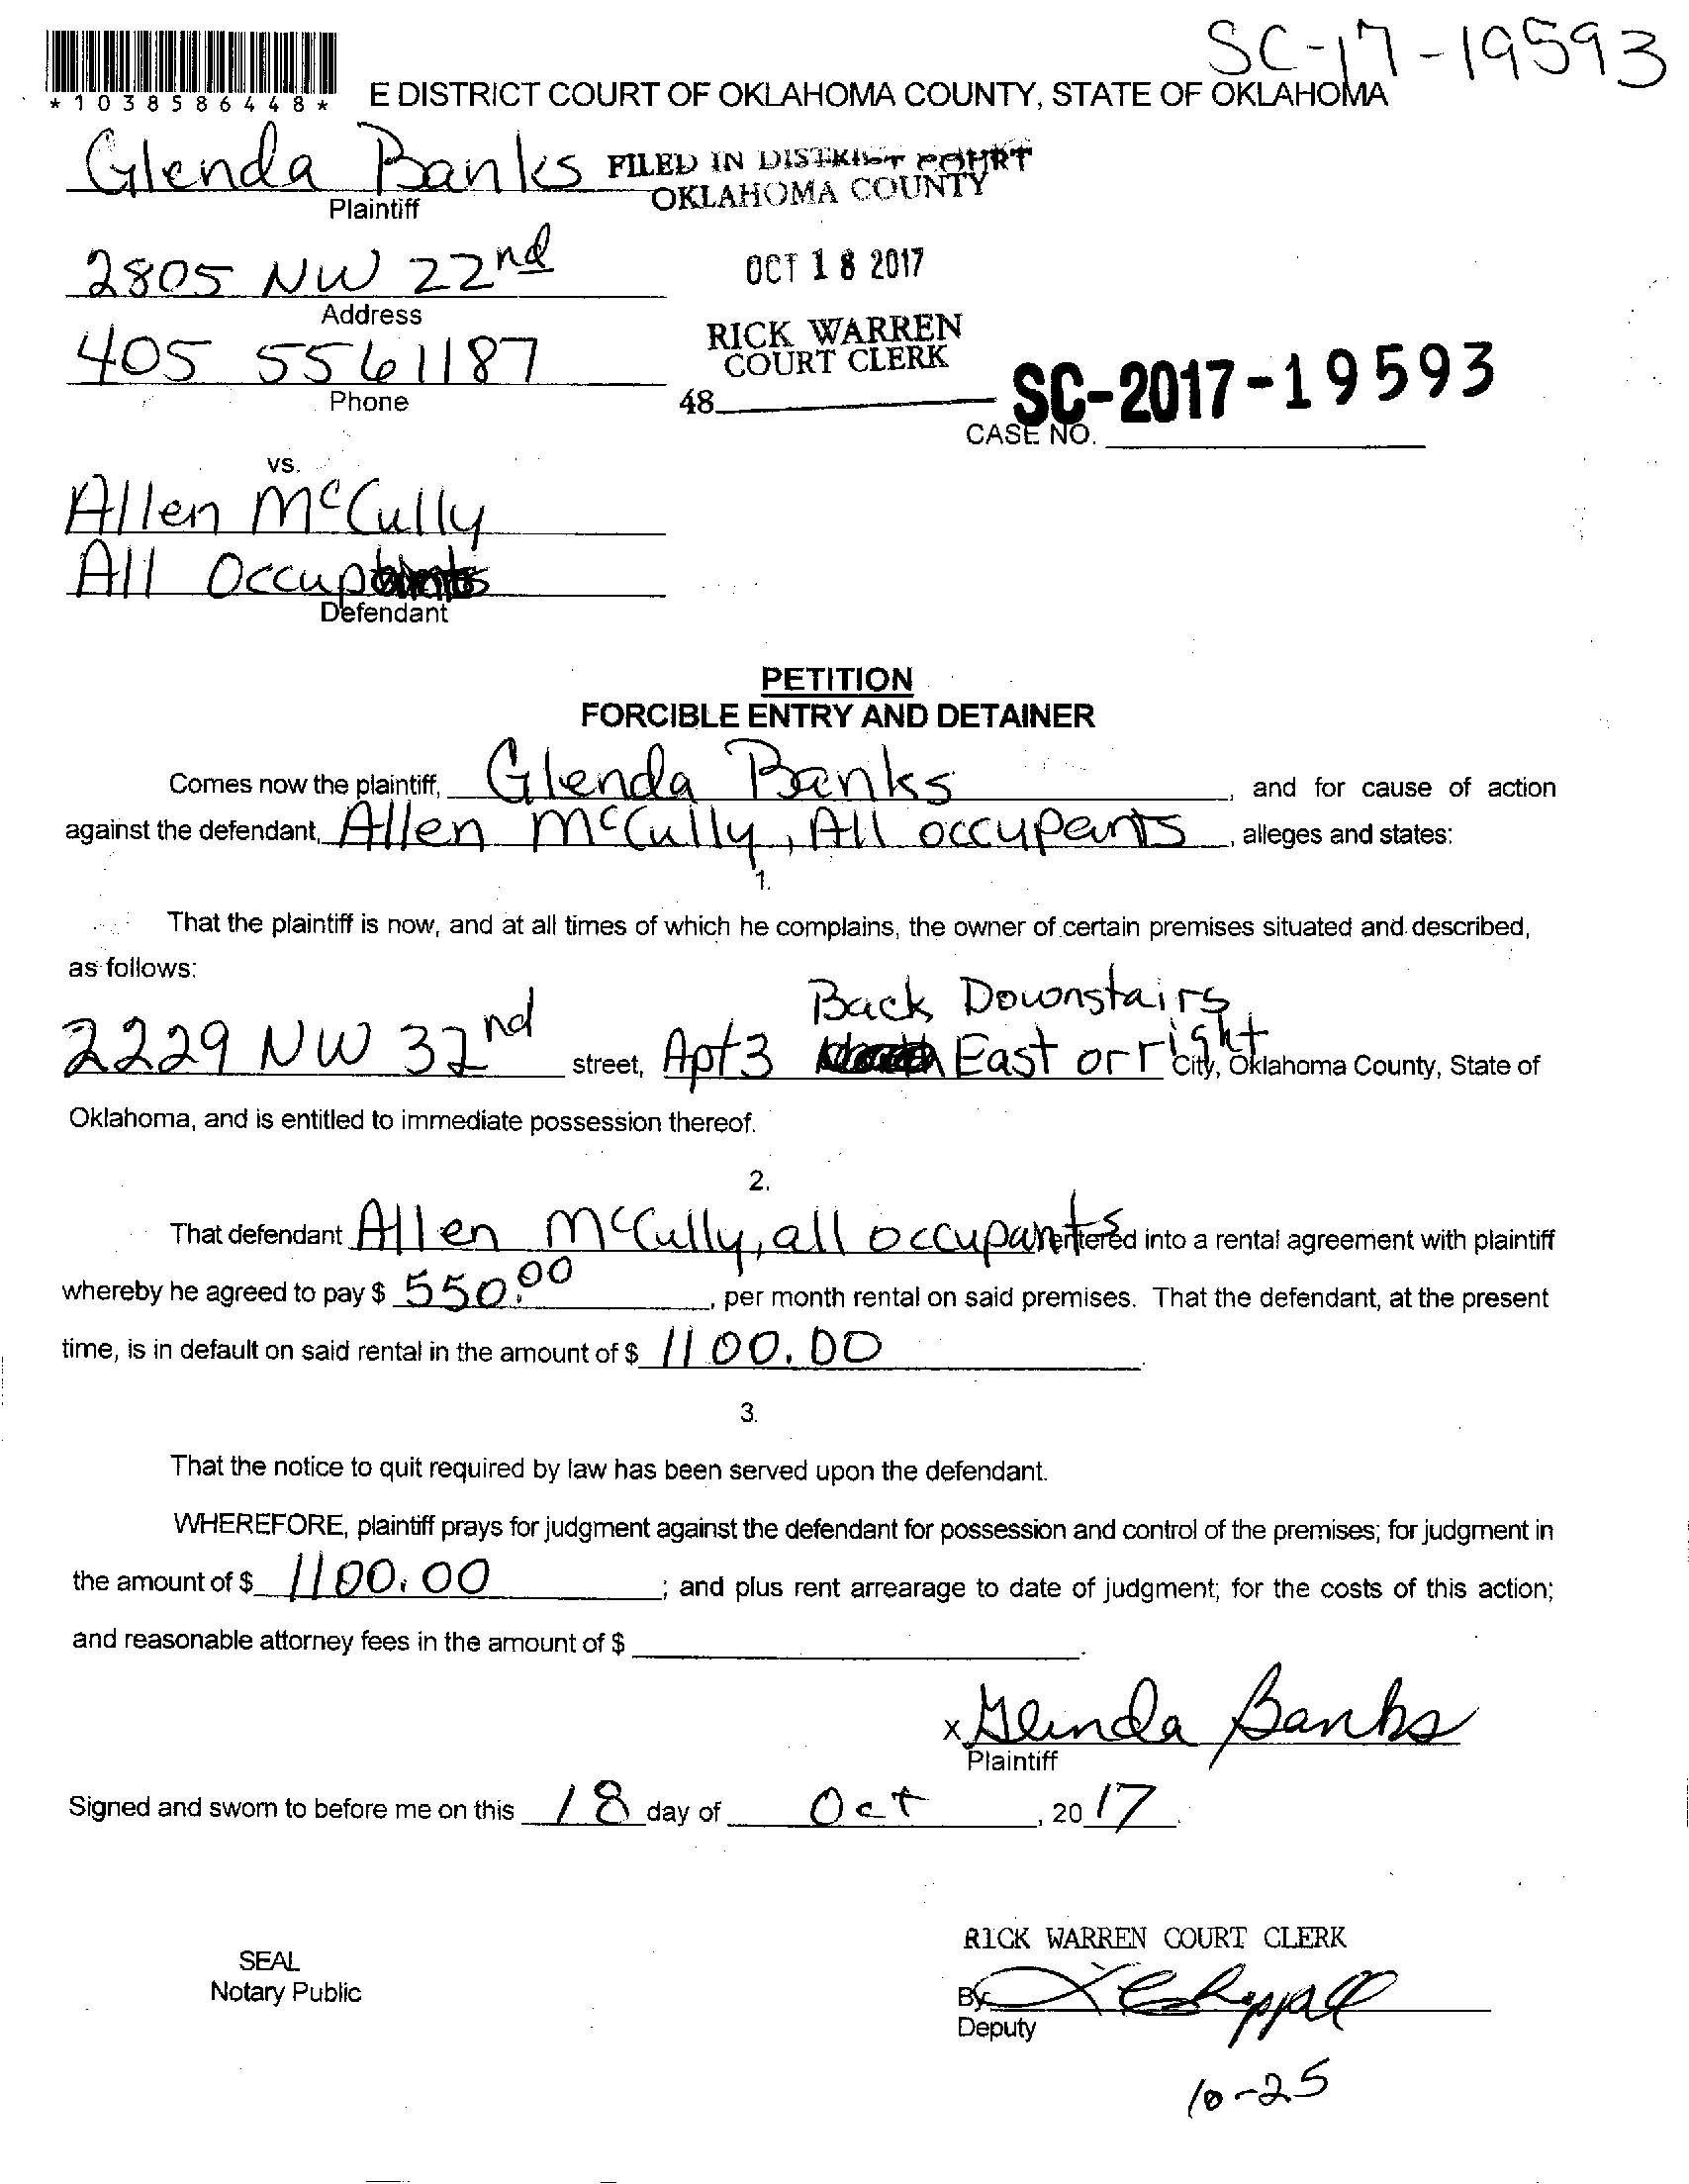 SC-17-19593
*1038586448*
E DISTRICT COURT OF OKLAHOMA COUNTY, STATE OF OKLAHOMA
Glenda Banks
Plaintiff
FILED IN DISTRICT COURT
OKLAHOMA COUNTY
2805 NW 22nd
Address
OCT 18 2017
405 556 1187
Phone
RICK WARREN
COURT CLERK
48
SC-2017-19593
CASE NO.
vs.
Allen McCully
All Occupants
Defendant
PETITION
FORCIBLE ENTRY AND DETAINER
Comes now the plaintiff, Glenda Banks, and for cause of action
against the defendant, Allen McCully, All occupants, alleges and states:
1.
That the plaintiff is now, and at all times of which he complains, the owner of certain premises situated and described,
as follows:
Back Downstairs
2229 NW 32nd street, Apt 3 East or right City, Oklahoma County, State of
Oklahoma, and is entitled to immediate possession thereof.
2.
That defendant Allen McCully, all occupants entered into a rental agreement with plaintiff
whereby he agreed to pay $ 550.00, per month rental on said premises. That the defendant, at the present
time, is in default on said rental in the amount of $ 1100.00.
3.
That the notice to quit required by law has been served upon the defendant.
WHEREFORE, plaintiff prays for judgment against the defendant for possession and control of the premises; for judgment in
the amount of $ 1100.00; and plus rent arrearage to date of judgment; for the costs of this action;
and reasonable attorney fees in the amount of $
x Glenda Banks
Plaintiff
Signed and sworn to before me on this 18 day of Oct, 2017.
RICK WARREN COURT CLERK
SEAL
Notary Public
By
Deputy
10-25